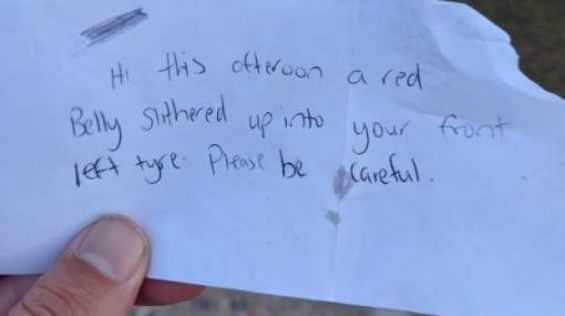 Hi this afteroon a red
Belly slithered up into your front
left tyre. Please be careful.